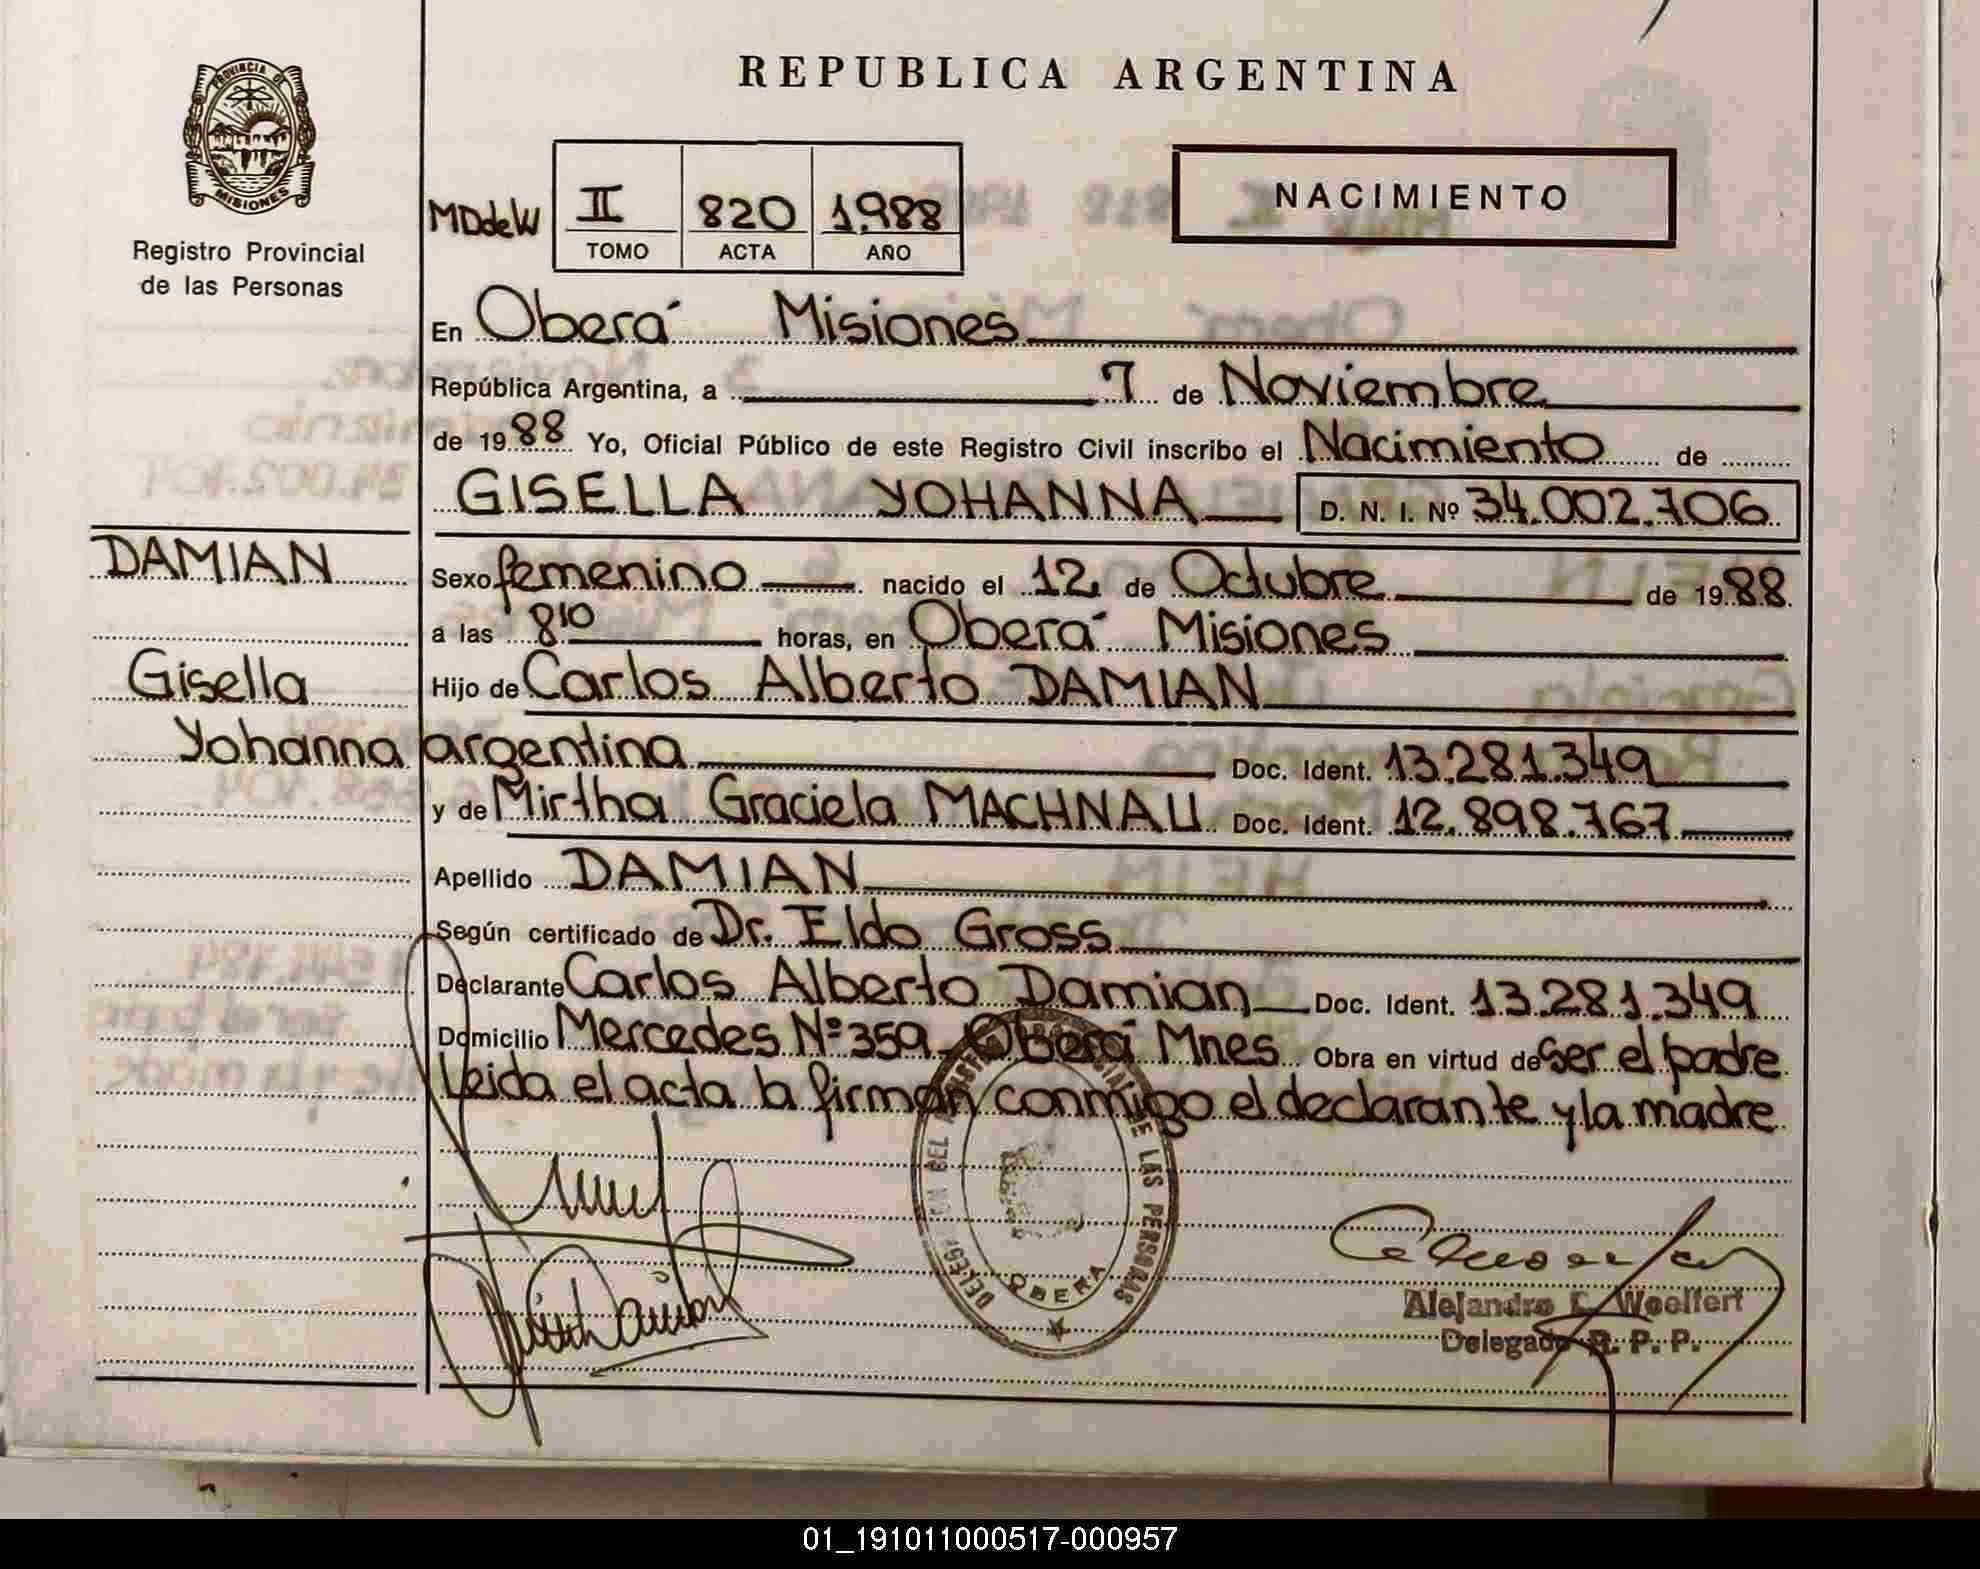 PROVINCIA DE
MISIONES
Registro Provincial
de las Personas
REPUBLICA ARGENTINA
MDdeW II 820 1.988
TOMO ACTA AÑO
NACIMIENTO
En Oberá Misiones
República Argentina, a 7 de Noviembre
de 1988 Yo, Oficial Público de este Registro Civil inscribo el Nacimiento de
GISELLA YOHANNA D. N. I. Nº 34.002.706
DAMIAN
Gisella
Yohanna
Sexo femenino nacido el 12 de Octubre de 1988
a las 8¹⁰ horas, en Oberá Misiones
Hijo de Carlos Alberto DAMIAN
argentina Doc. Ident. 13.281.349
y de Mirtha Graciela MACHNAU Doc. Ident. 12.898.767
Apellido DAMIAN
Según certificado de Dr. Eldo Gross
Declarante Carlos Alberto Damian Doc. Ident. 13.281.349
Domicilio Mercedes Nº 359 Oberá Mnes Obra en virtud de ser el padre
Leida el acta la firman conmigo el declarante y la madre
DE LAS PERSONAS
OBERA
Alejandro Woelfert
Delegado R. P. P.
01_191011000517-000957